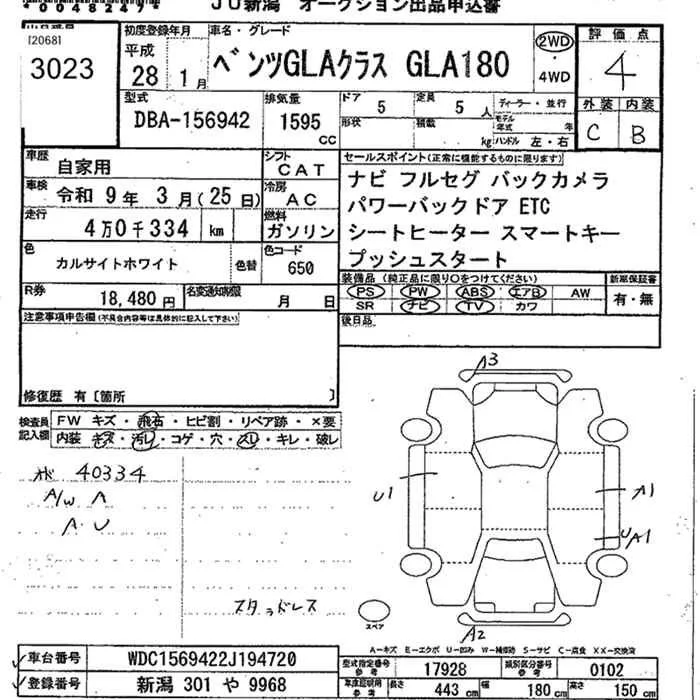 00482494
JU新潟 オークション出品申込書
[2068]
3023
初度登録年月
平成
28年 1月
車名・グレード
ベンツGLAクラス GLA180
2WD
・
4WD
評価点
4
外装 内装
C B
型式
DBA-156942
排気量
1595 cc
ドア 5
定員 5 人
形状
積載 kg
ディーラー・並行
モデル年式 年
ハンドル 左・右
車歴
自家用
シフト
CAT
車検
令和 9年 3月(25日)
冷房
AC
走行
4万0千334 km
燃料
ガソリン
色
カルサイトホワイト
色替
色コード
650
R券
18,480円
名変通知期限
月 日
セールスポイント(正常に機能するものに限ります)
ナビ フルセグ バックカメラ
パワーバックドア ETC
シートヒーター スマートキー
プッシュスタート
装備品(純正品に限り○をつけてください)
PS PW ABS エアB AW
SR ナビ TV カワ
新車保証書
有・無
後日品
注意事項申告欄(不具合内容等は具体的に記入して下さい)
修復歴 有〔箇所 〕
検査員記入欄
FW キズ・飛石・ヒビ割・リペア跡・×要
内装 キズ・汚レ・コゲ・穴・スレ・キレ・破レ
40334
A/W A
A U
スタッドレス
A3
U1
A1
UA1
A2
スペア
A-キズ E-エクボ U-凹み W-補修跡 S-サビ C-腐食 XX-交換済
車台番号
WDC1569422J194720
登録番号
新潟 301 や 9968
型式指定番号
参考
17928
類別区分番号
参考
0102
車庫証明用
参考
長さ 443 cm
幅 180 cm
高さ 150 cm